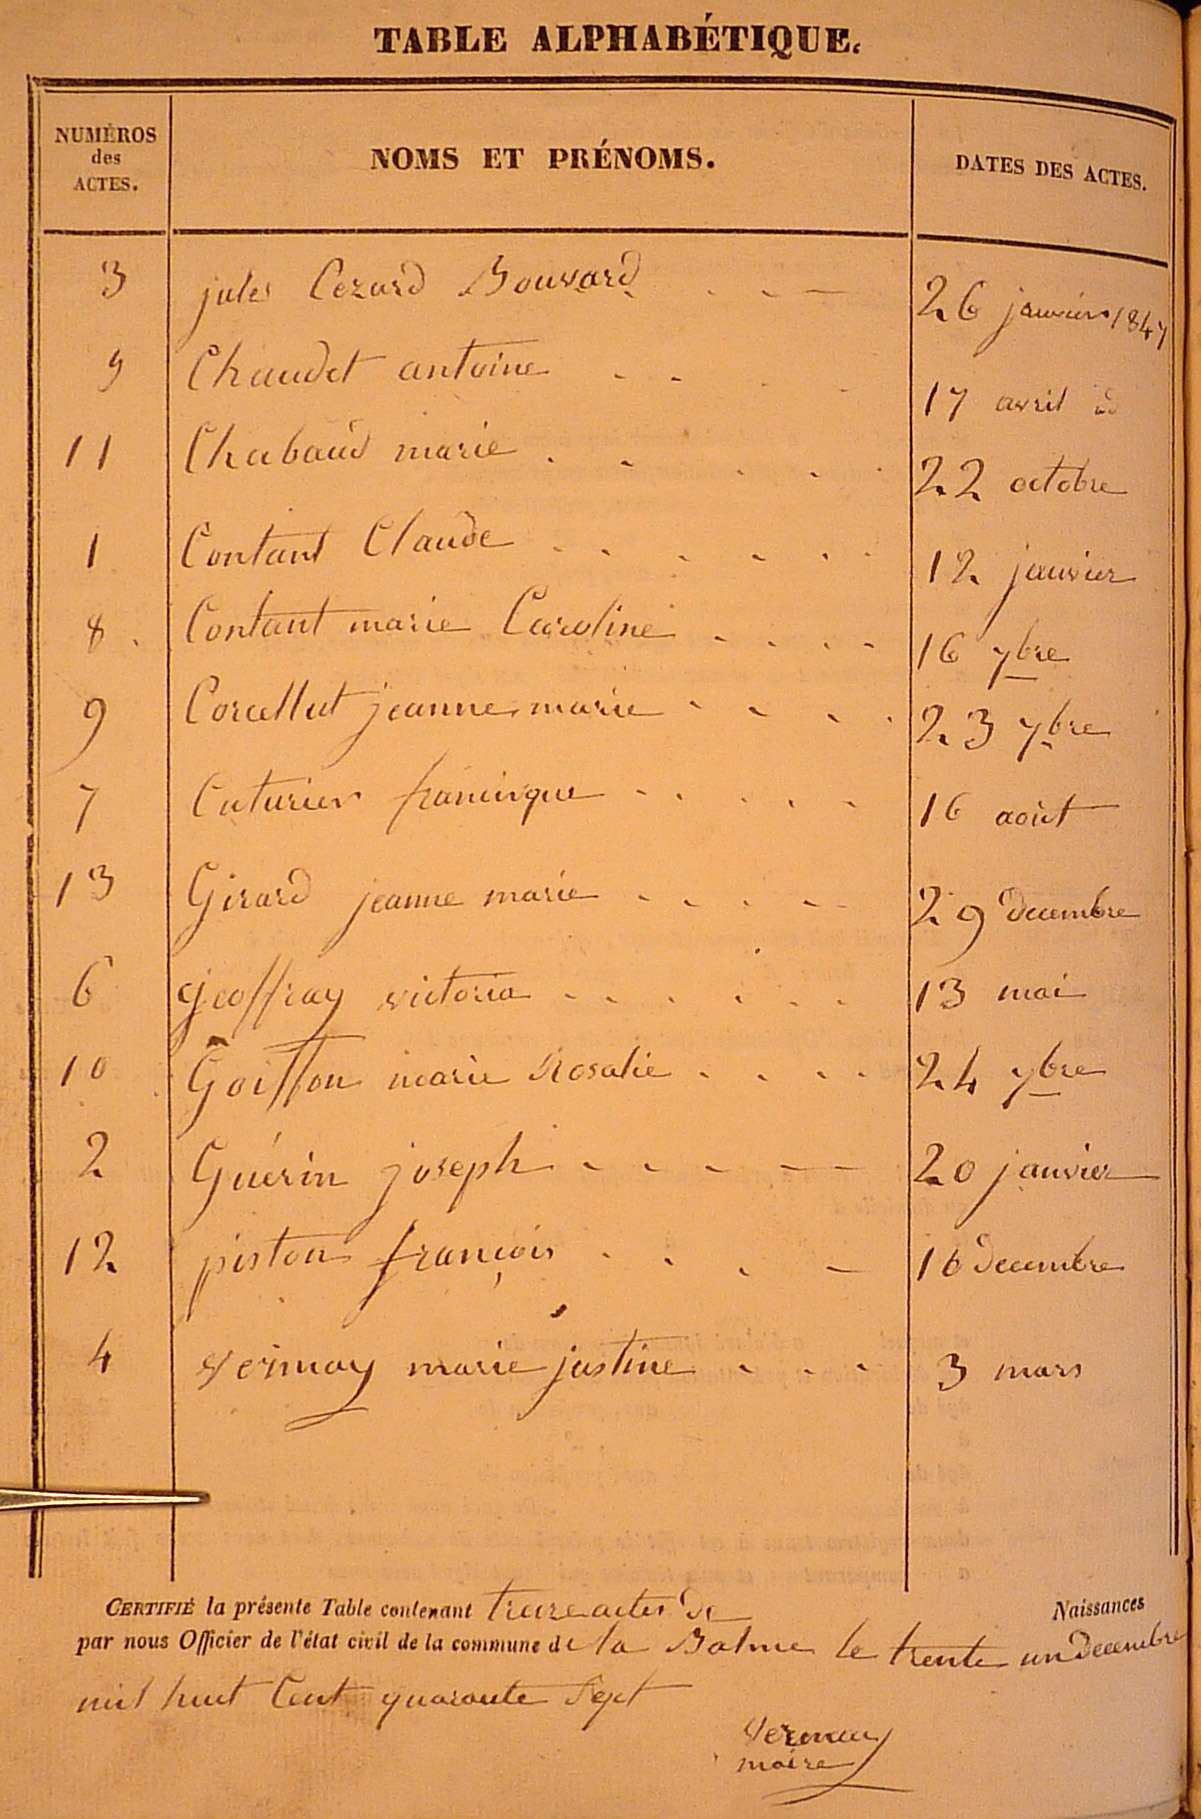 TABLE ALPHABÉTIQUE.
NUMÉROS
des
ACTES.
NOMS ET PRÉNOMS.
DATES DES ACTES.
3 jules Cezard Bouvard 26 janvier 1847
5 Chaudet antoine 17 avril id
11 Chabaud marie 22 octobre
1 Contant Claude 12 janvier
8 Contant marie Caroline 16 7bre
9 Corcellut jeanne marie 23 7bre
7 Cuturier francisque 16 août
13 Girard jeanne marie 29 decembre
6 geoffray victoria 13 mai
10 Goiffon marie Rosalie 24 7bre
2 Guérin joseph 20 janvier
12 piston françois 16 decembre
4 vernay marie justine 3 mars
CERTIFIÉ la présente Table contenant treize actes de Naissances
par nous Officier de l'état civil de la commune de la Balme le trente un decembre
mil huit Cent quarante Sept
vernay
maire